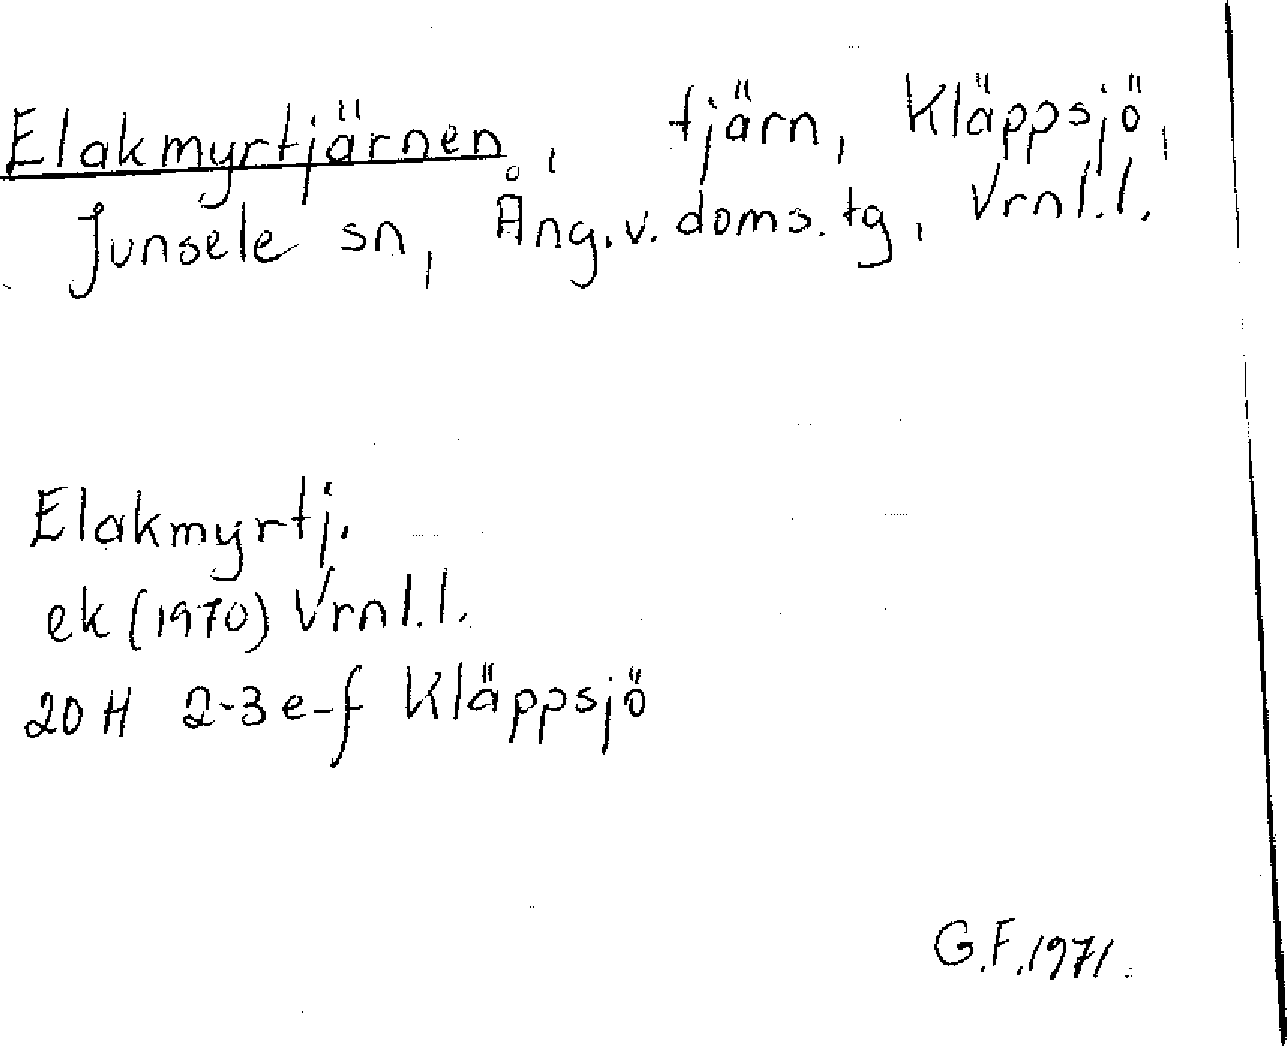 Elakmyrtjärnen, tjärn, Kläppsjö,
Junsele sn, Ång.v.doms.tg, Vrnl.l.
Elakmyrtj.
ek (1970) Vrnl.l.
20 H 2-3 e-f Kläppsjö
G.F.1971.